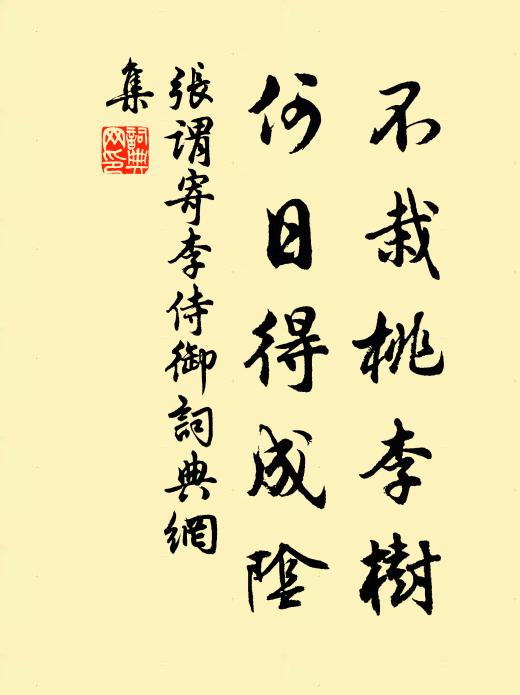 不栽桃李樹
何日得成陰
張謂寄李侍御詞典網
集
詞典
网印